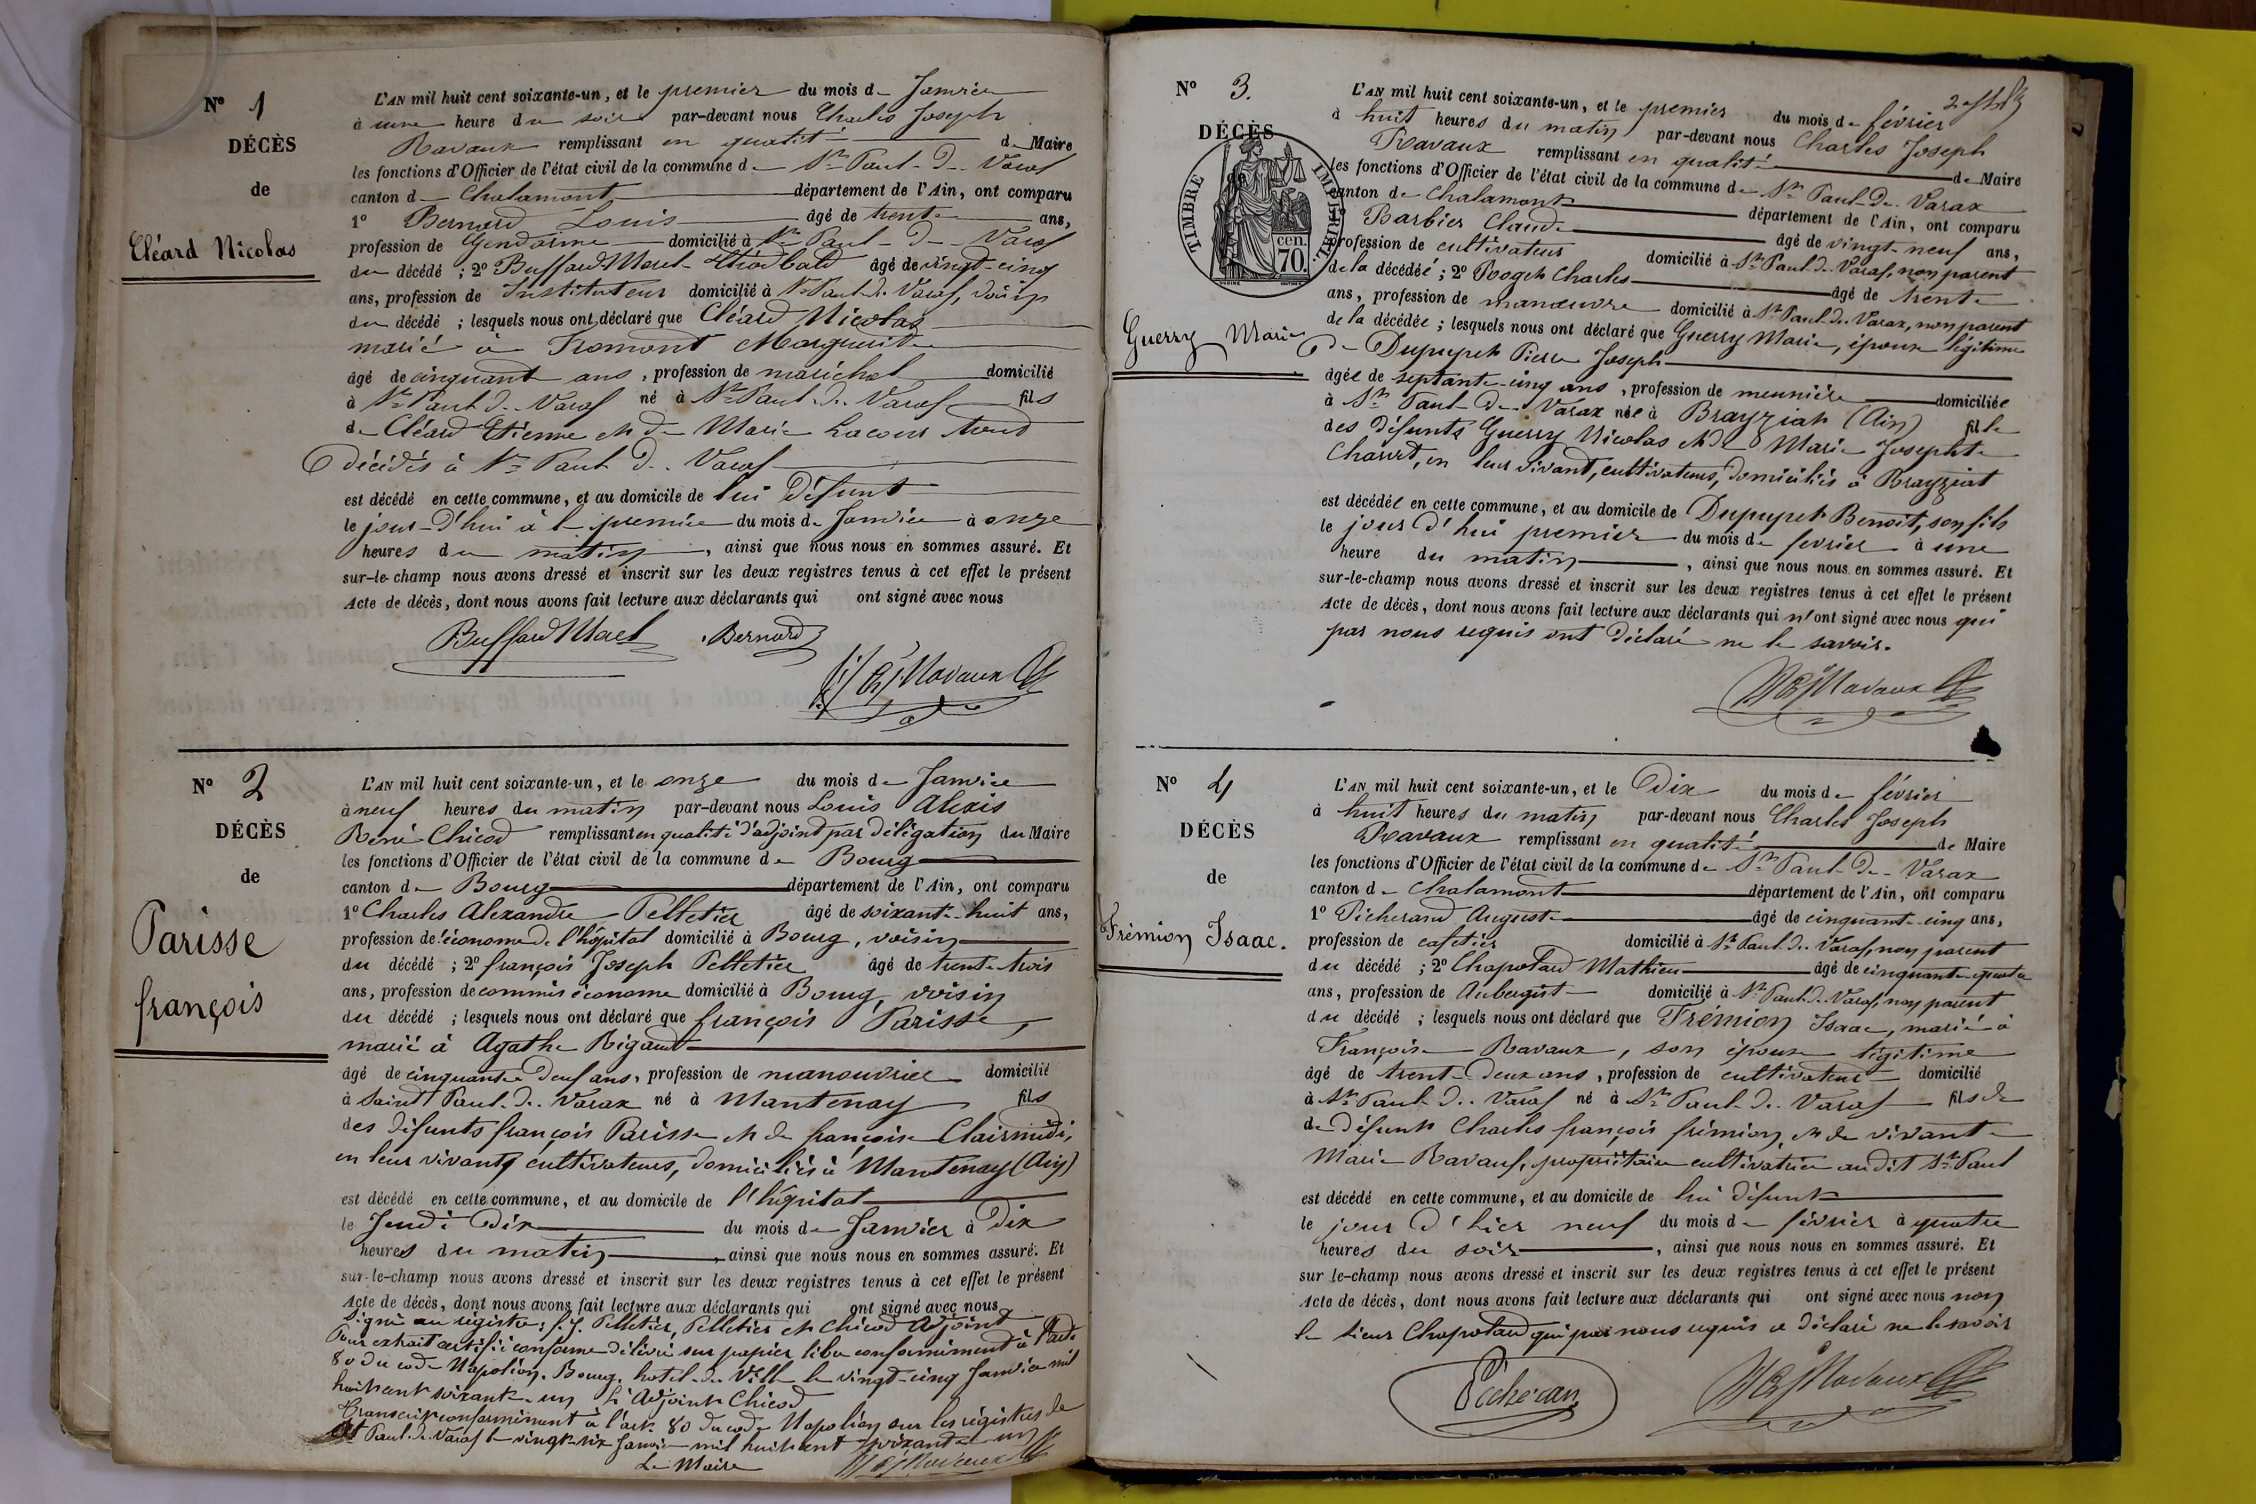 N° 1
DÉCÈS
de
Cléard Nicolas
L'AN mil huit cent soixante-un, et le premier du mois de Janvier
à une heure du soir par-devant nous Charles Joseph
Ravaux remplissant en qualité de Maire
les fonctions d'Officier de l'état civil de la commune de St Paul-de-Varax
canton de Chalamont département de l'Ain, ont comparu
1° Bernard Louis âgé de trente ans,
profession de Gendarme domicilié à St Paul-de-Varax
du décédé ; 2° Buffard Morel Théodbald âgé de vingt-cinq
ans, profession de Instituteur domicilié à St Paul-de-Varax, voisin
du décédé ; lesquels nous ont déclaré que Cléard Nicolas
marié à Fromont Marguerite
âgé de cinquante ans, profession de maréchal domicilié
à St Paul-de-Varax né à St Paul-de-Varax fils
de Cléard Etienne et de Marie Lacour tous
décédés à St Paul-de-Varax
est décédé en cette commune, et au domicile de lui défunt
le jour-d'hui à le premier du mois de Janvier à onze
heures du matin, ainsi que nous nous en sommes assuré. Et
sur-le-champ nous avons dressé et inscrit sur les deux registres tenus à cet effet le présent
Acte de décès, dont nous avons fait lecture aux déclarants qui ont signé avec nous
Buffard Morel Bernard
Ravaux
N° 2
DÉCÈS
de
Parisse
françois
L'AN mil huit cent soixante-un, et le onze du mois de Janvier
à neuf heures du matin par-devant nous Louis Alexis
René Chicod remplissant en qualité d'adjoint par délégation du Maire
les fonctions d'Officier de l'état civil de la commune de Bourg
canton de Bourg département de l'Ain, ont comparu
1° Charles Alexandre Pelletier âgé de soixante-huit ans,
profession de économe de l'hôpital domicilié à Bourg, voisin
du décédé ; 2° françois Joseph Pelletier âgé de trente-trois
ans, profession de commis économe domicilié à Bourg, voisin
du décédé ; lesquels nous ont déclaré que françois Parisse,
marié à Agathe Rigaud
âgé de cinquante deux ans, profession de manouvrier domicilié
à Saint Paul-de-Varax né à Mantenay fils
des défunts françois Parisse et de françoise Clairmidi,
en leur vivants cultivateurs, domiciliés à Mantenay (Ain)
est décédé en cette commune, et au domicile de l'hôpital
le Jeudi Dix du mois de Janvier à Dix
heures du matin, ainsi que nous nous en sommes assuré. Et
sur-le-champ nous avons dressé et inscrit sur les deux registres tenus à cet effet le présent
Acte de décès, dont nous avons fait lecture aux déclarants qui ont signé avec nous
Signé au registre: f. J. Pelletier, Pelletier et Chicod Adjoint
Pour extrait certifié conforme délivré sur papier libre conformément à l'article
80 du code Napoléon. Bourg, hotel-de-Ville le vingt-cinq Janvier mil
huit cent soixante-un L'Adjoint Chicod
Transcrit conformément à l'art. 80 du code Napoléon sur les régistres de
St Paul-de-Varax le vingt-six Janvier mil huit cent soixante-un
Le Maire Ravaux
N° 3.
DÉCÈS
de
TIMBRE IMPÉRIAL.
70 cen.
Guerry Marie
L'AN mil huit cent soixante-un, et le premier du mois de février
à huit heures du matin par-devant nous Charles Joseph
Ravaux remplissant en qualité de Maire
les fonctions d'Officier de l'état civil de la commune de St Paul-de-Varax
canton de Chalamont département de l'Ain, ont comparu
1° Barbier Claude âgé de vingt-neuf ans,
profession de cultivateur domicilié à St Paul-de-Varax, non parent
de la décédée ; 2° Pooget Charles âgé de trente
ans, profession de manœuvre domicilié à St Paul-de-Varax, non parent
de la décédée ; lesquels nous ont déclaré que Guerry Marie, épouse légitime
de Dupupet Pierre Joseph
âgée de septante-cinq ans, profession de meunière domiciliée
à St Paul-de-Varax née à Brayziat (Ain) fille
des défunts Guerry Nicolas et de Marie Josephte
Charvet, en leur vivant, cultivateurs, domiciliés à Brayziat
est décédée en cette commune, et au domicile de Dupupet Benoît, son fils
le jour d'hui premier du mois de février à une
heure du matin, ainsi que nous nous en sommes assuré. Et
sur-le-champ nous avons dressé et inscrit sur les deux registres tenus à cet effet le présent
Acte de décès, dont nous avons fait lecture aux déclarants qui n'ont signé avec nous qui
par nous requis ont déclaré ne le savoir.
Ravaux
N° 4
DÉCÈS
de
Frémion Isaac.
L'AN mil huit cent soixante-un, et le Dix du mois de février
à huit heures du matin par-devant nous Charles Joseph
Ravaux remplissant en qualité de Maire
les fonctions d'Officier de l'état civil de la commune de St Paul-de-Varax
canton de Chalamont département de l'Ain, ont comparu
1° Picherand Auguste âgé de cinquante-cinq ans,
profession de cafetier domicilié à St Paul-de-Varax, non parent
du décédé ; 2° Chapotard Mathieu âgé de cinquante-quatre
ans, profession de Aubergiste domicilié à St Paul-de-Varax, non parent
du décédé ; lesquels nous ont déclaré que Frémion Isaac, marié à
Françoise Ravaux, son épouse légitime
âgé de trente-deux ans, profession de cultivateur domicilié
à St Paul-de-Varax né à St Paul-de-Varax fils de
de défunt Charles françois frémion, et de vivante
Marie Ravaux, propriétaire cultivatrice audit St Paul
est décédé en cette commune, et au domicile de lui défunt
le jour d'hier neuf du mois de février à quatre
heures du soir, ainsi que nous nous en sommes assuré. Et
sur le-champ nous avons dressé et inscrit sur les deux registres tenus à cet effet le présent
Acte de décès, dont nous avons fait lecture aux déclarants qui ont signé avec nous non
le sieur Chapotard qui par nous requis a déclaré ne le savoir
Picheran Ravaux